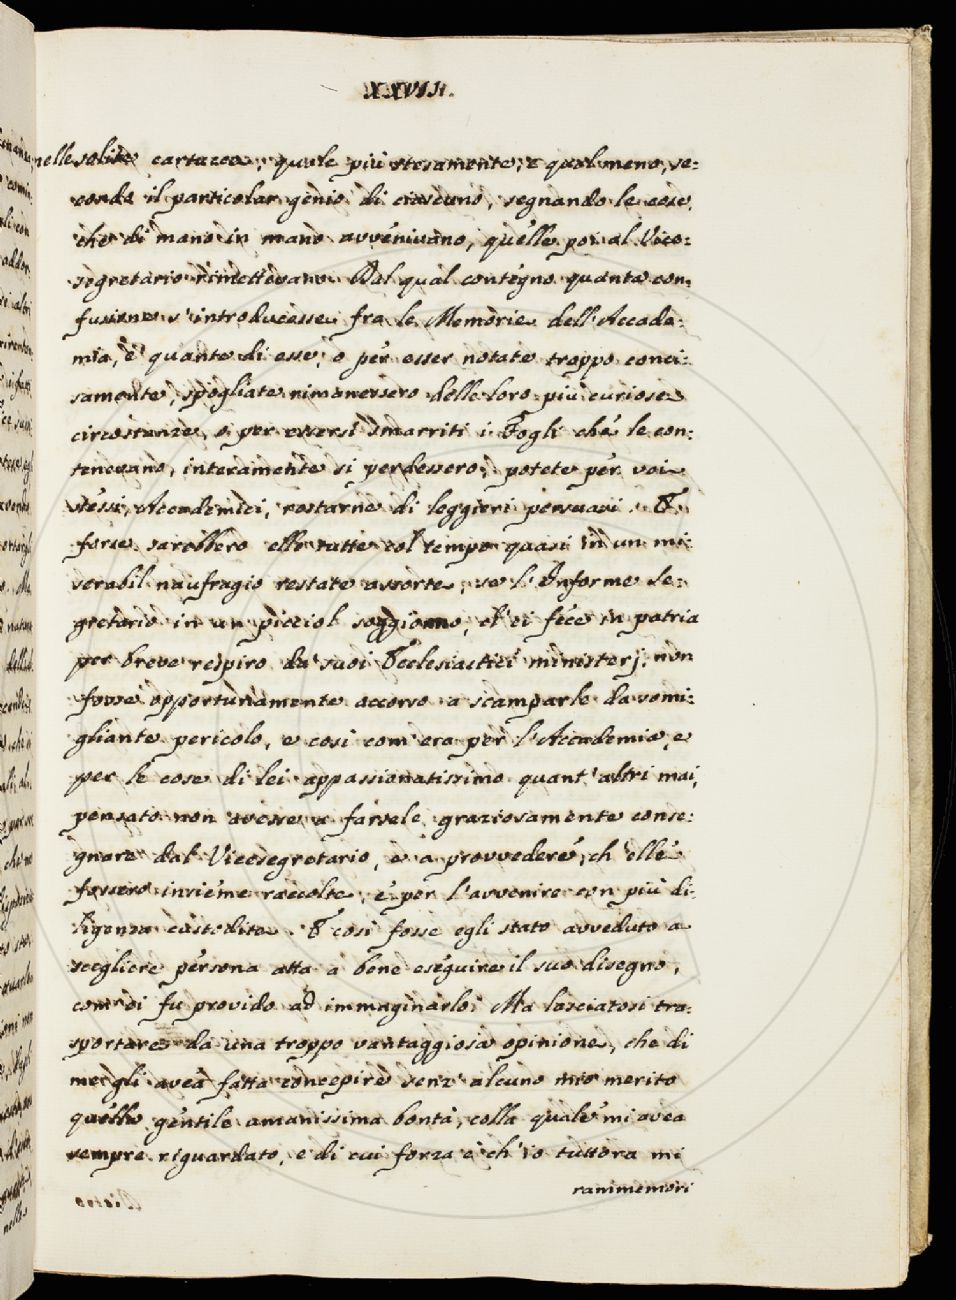 XXVII.
nelle solite cartucce, quale più stesamente, e qual meno, se-
condo il particolar genio di ciascuno, segnando le cose,
che di mano in mano avvenivano, quelle poi al Vice-
segretario rimettevano. Dal qual contegno quanta con-
fusione s'introducesse fra le Memorie dell'Accade-
mia, e quante di esse, o per esser notate troppo conci-
samente, spogliate rimanessero delle loro più curiose
circostanze, o per essersi smarriti i Fogli che le con-
tenevano, interamente si perdessero, potete per voi
stessi, Accademici, restarne di leggieri persuasi. E
forse sarebbero elle tutte col tempo quasi in un mi-
serabil naufragio restate assorte, se l'Informe Se-
gretario in un picciol soggiorno, ch'ei fece in patria
per breve respiro da' suoi Ecclesiastici ministerj, non
fosse opportunamente accorso a scamparle da somi-
gliante pericolo, e così com'era per l'Accademia, e
per le cose di lei appassionatissimo quant'altri mai,
pensato non avesse a farsele graziosamente conse-
gnare dal Vicesegretario, e a provvedere, ch'elle
fossero insieme raccolte, e per l'avvenire con più di-
ligenza custodite. E così fosse egli stato avveduto a
scegliere persona atta a bene eseguire il suo disegno,
com'ei fu provido ad immaginarlo. Ma lasciatosi tra-
sportare da una troppo vantaggiosa opinione, che di
me gli avea fatta concepire senz'alcuno mio merito
quella gentile amanissima bontà, colla quale mi avea
sempre riguardato, e di cui forza è ch'io tuttora mi
rammemori